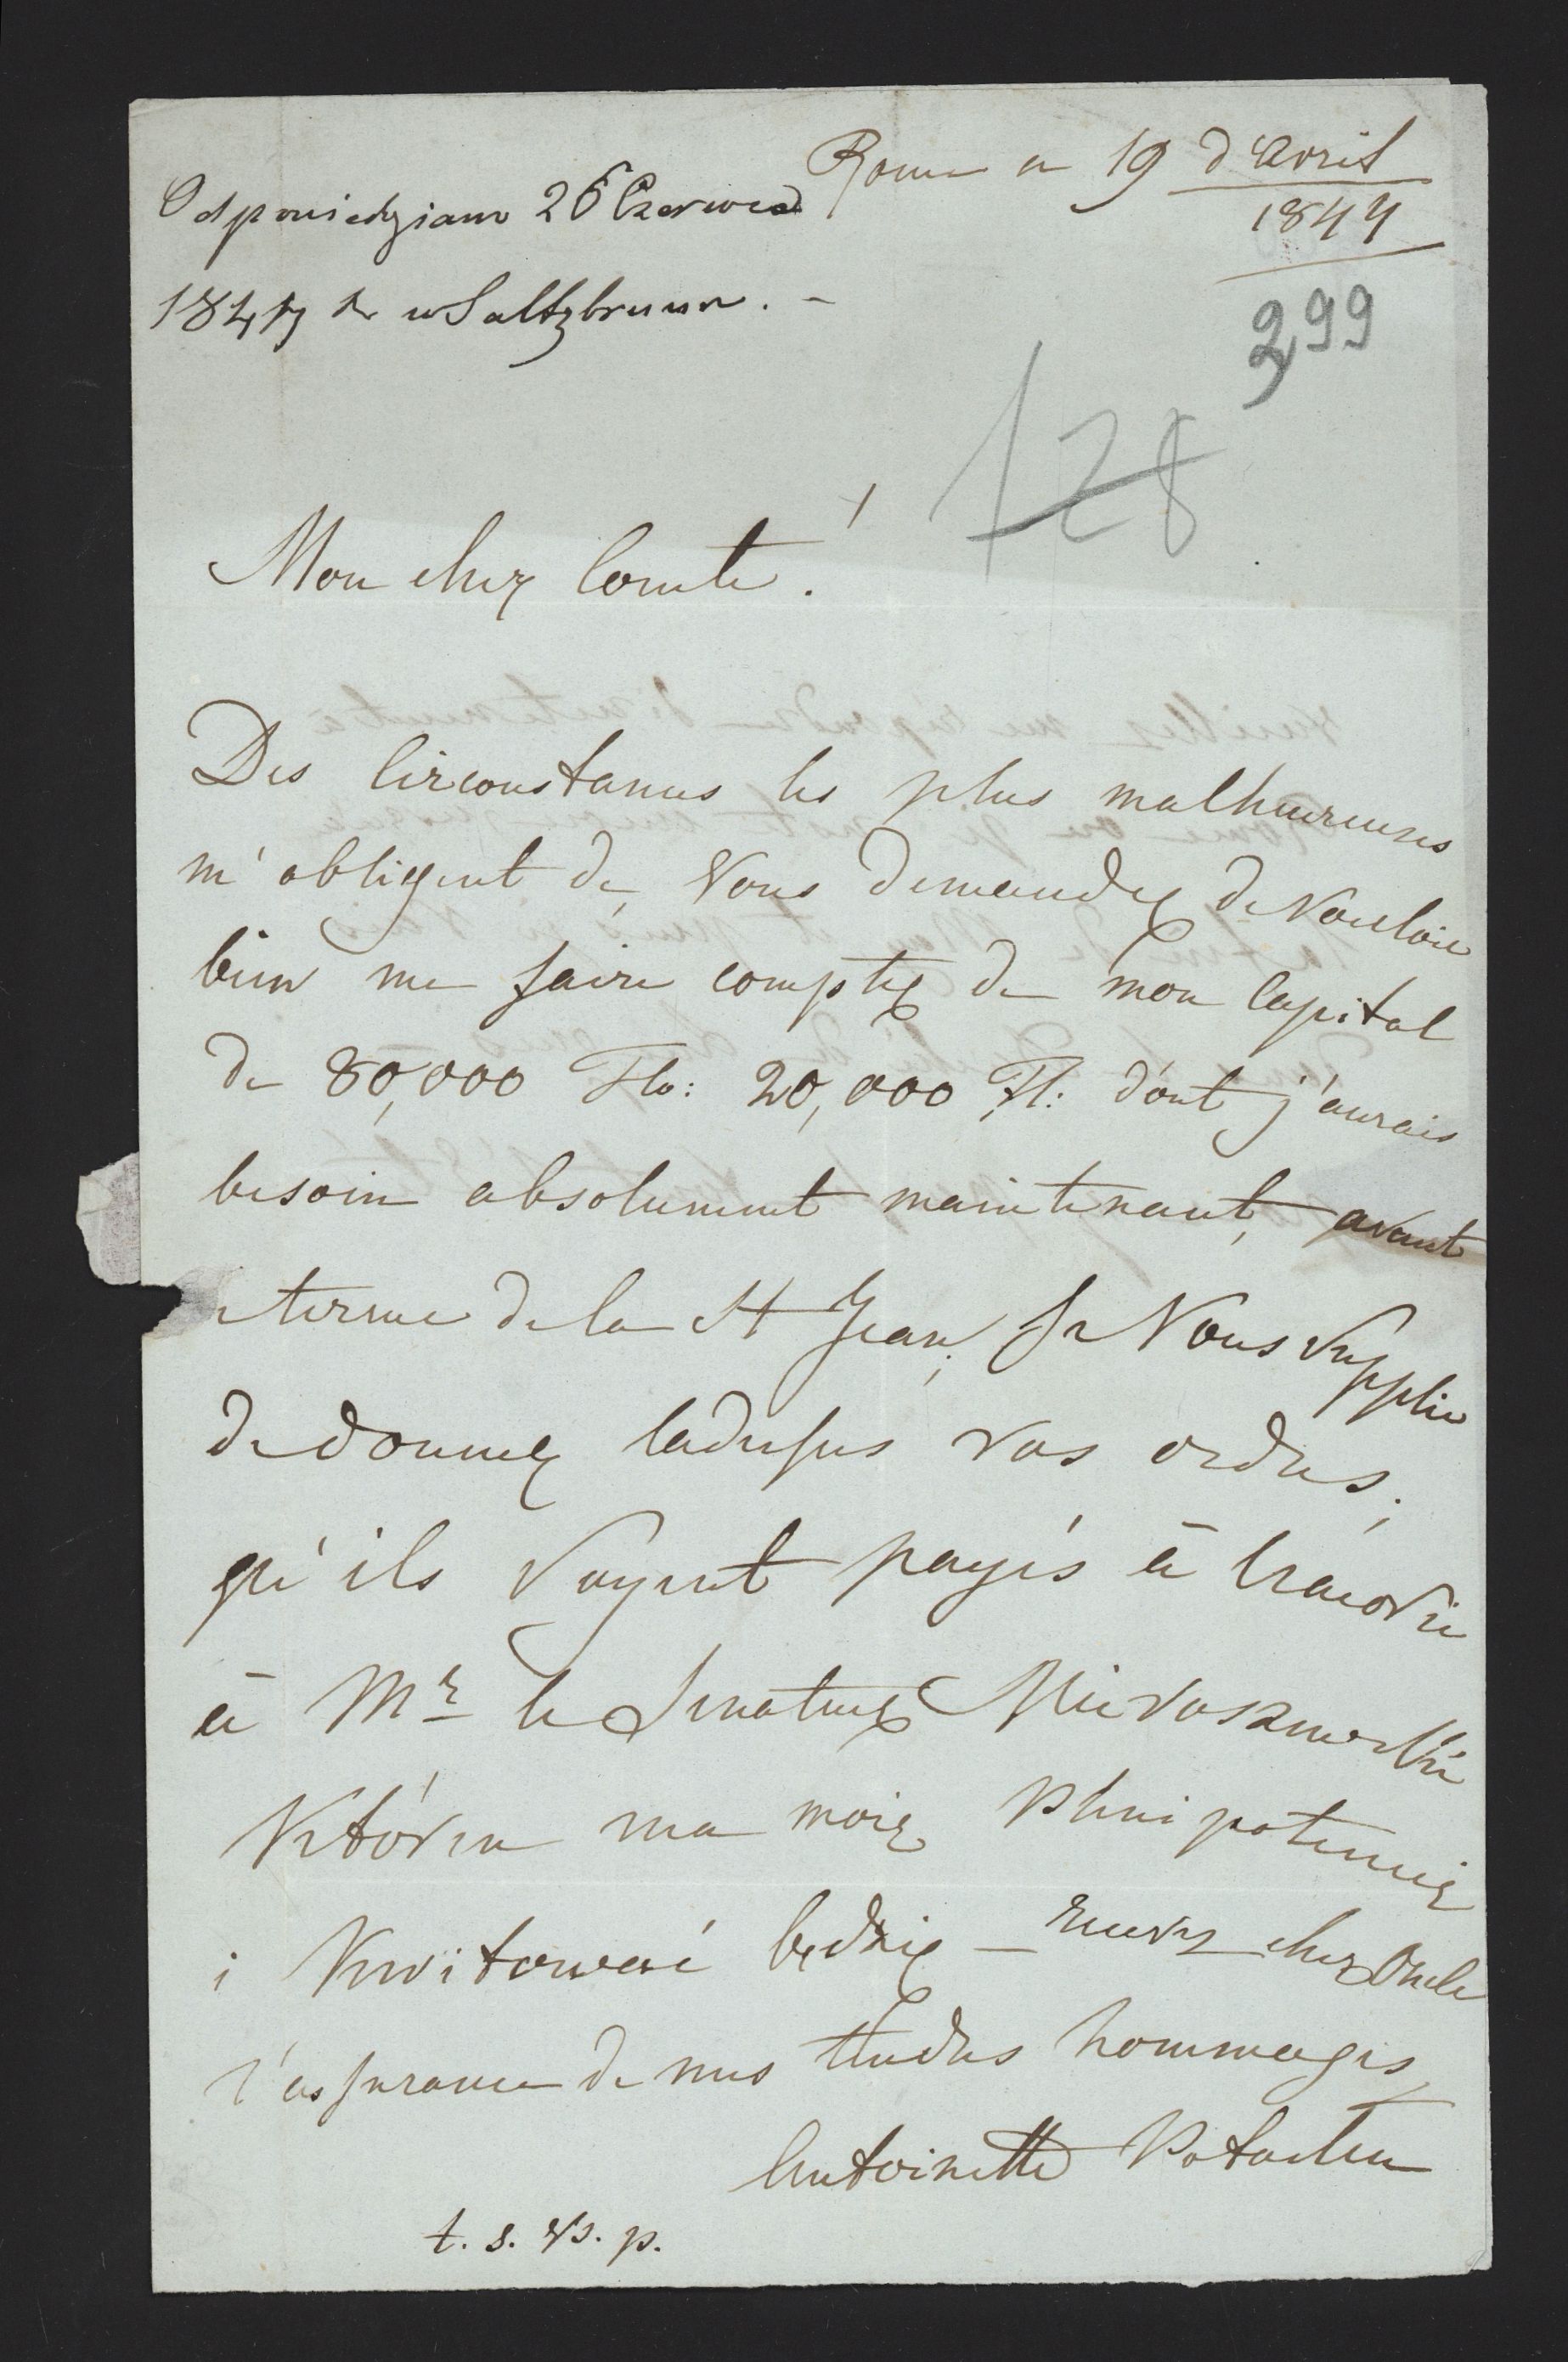 Rome ce 19 d'Avril
1844
Odpowiedziano 26 Czerwca
1844 r w Saltzbrunn. -
299
128
Mon cher Comte!
Des Circonstances les plus malheureuses
m'obligent de Vous demander de Vouloir
bien me faire compter de mon Capital
de 80,000 Flo: 20,000 Fl: dont j'aurais
besoin absolument maintenant, avant
terme de la St Jean; Je Vous supplie
de donner ladessus vos ordres;
qu'ils soyent payés à Cracovie
à Mr le Senateur
Którен ma moię Plenipotencię
i Kwitować będzię - recevez cher Oncle
l'assurance de mes tendres hommages
Antoinette Potocka
t. s. vs. p.